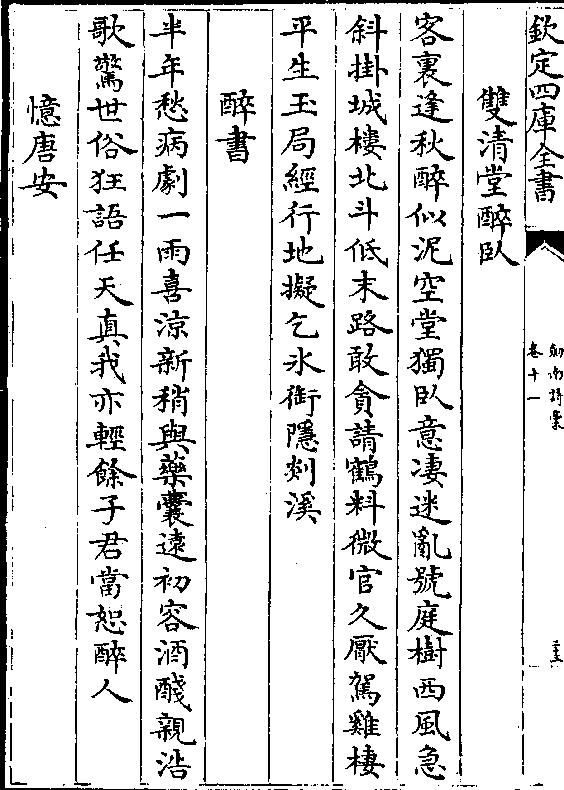 欽定四庫全書
劍南詩槀
卷十一
雙清堂醉臥
客裏逢秋醉似泥空堂獨臥意凄迷亂號庭樹西風急
斜掛城樓北斗低末路敢貪請鶴料微官久厭駕雞棲
平生玉局經行地擬乞氷銜隱剡溪
醉書
半年愁病劇一雨喜涼新稍與藥囊遠初容酒醆親浩
歌驚世俗狂語任天真我亦輕餘子君當恕醉人
憶唐安